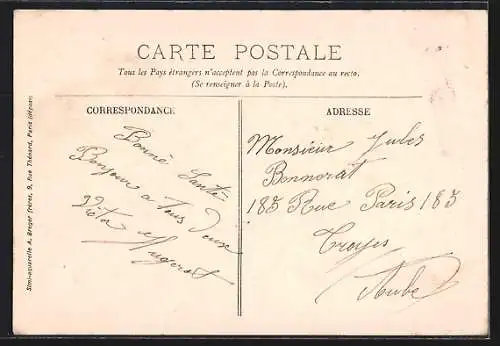 CARTE POSTALE
Tous les Pays étrangers n'acceptent pas la Correspondance au recto.
(Se renseigner à la Poste).
CORRESPONDANCE
Bonne Santé
Bonjour a Tous Deux
Victor
Mugerot
ADRESSE
Monsieur Jules
Bonnorat
183 Rue Paris 183
Troyes
Aube
Simi-aquarelle A. Breger frères, 9, Rue Thénard, Paris (déposé)